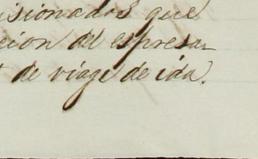 isionados que
cion del espresa-
de viage de ida.